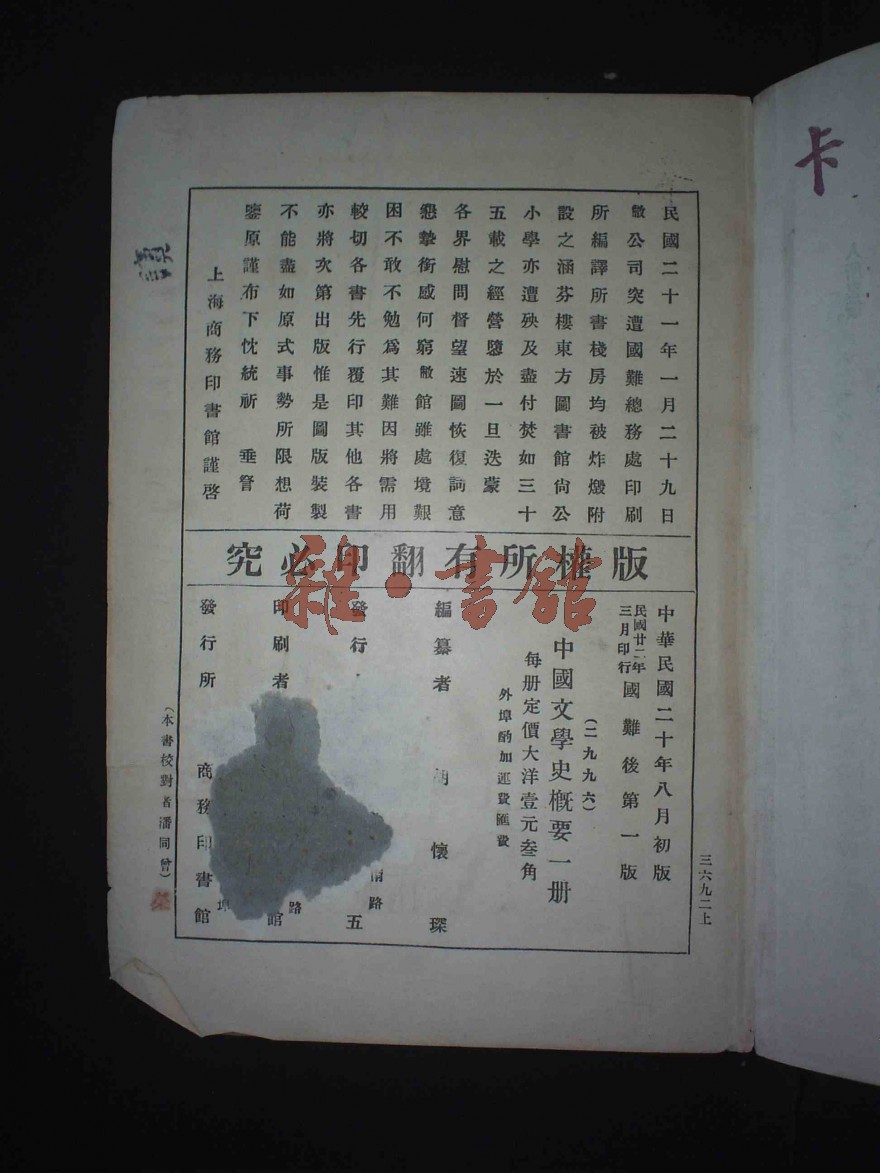 民國二十一年一月二十九日
敝公司突遭國難總務處印刷
所編譯所書棧房均被炸燬附
設之涵芬樓東方圖書館尙公
小學亦遭殃及盡付焚如三十
五載之經營隳於一旦迭蒙
各界慰問督望速圖恢復詞意
懇摯銜感何窮敝館雖處境艱
困不敢不勉爲其難因將需用
較切各書先行覆印其他各書
亦將次第出版惟是圖版裝製
不能盡如原式事勢所限想荷
鑒原謹布下忱統祈 垂詧
上海商務印書館謹啓
版權所有翻印必究
中華民國二十年八月初版
民國廿二年三月印行國難後第一版
(二九九六)
中國文學史概要一册
每册定價大洋壹元叁角
外埠酌加運費匯費
編纂者 胡懷琛
發行 五
路
印刷者 館
路
發行所 商務印書館
埠
(本書校對者潘同曾)
三六九二上
卡
雜·書館